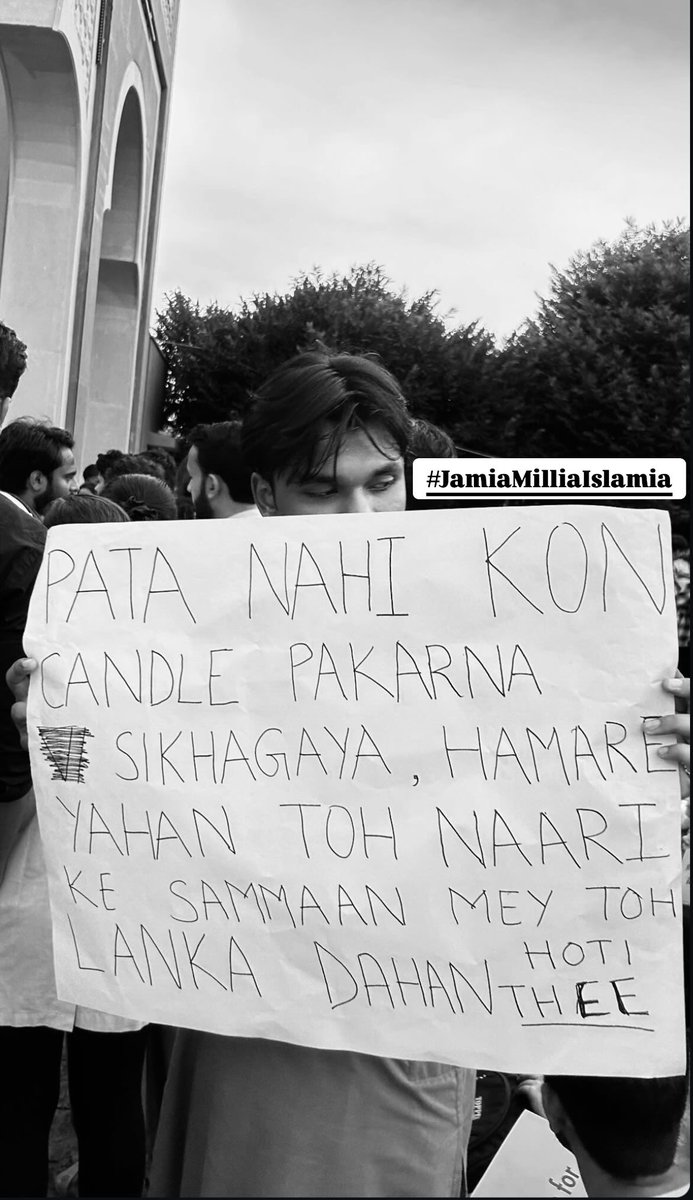 #JamiaMilliaIslamia
PATA NAHI KON
CANDLE PAKARNA
SIKHAGAYA, HAMARE
YAHAN TOH NAARI
KE SAMMAAN MEY TOH
LANKA DAHAN HOTI
THEE
for